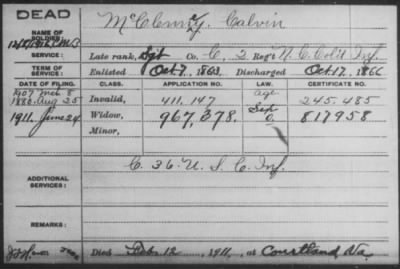 DEAD
NAME OF SOLDIER:
McClenny, Calvin
SERVICE:
Late rank, Sgt Co. C, 2 Reg't N. C. Col'd Inf.
TERM OF SERVICE:
Enlisted Oct 7, 1863. Discharged Oct 17, 1866
DATE OF FILING. CLASS. APPLICATION NO. LAW. CERTIFICATE NO.
1907 Mch 8 age
1880. Aug 25 Invalid, 411,147 245.485
1911. June 24 Widow, 967,378. Sep 817958
Minor,
ADDITIONAL SERVICES:
C. 36 U. S. C. Inf.
REMARKS:
Died Feb. 12, 1911, at Courtland, Va.